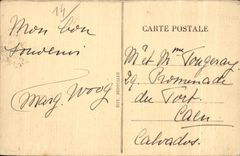 14/
CARTE POSTALE
Mon bon
souvenir
Marg. Woog
Mr et Mme Tougeray
29 Promenade
du Fort
Caen
Calvados.